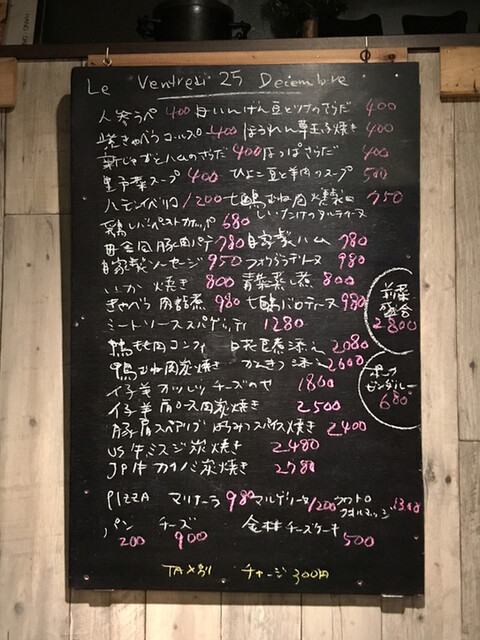 Le Vendredi 25 Decembre
人参ラペ 400 白いんげん豆とツナのさらだ 400
紫きゃべつコールスロ 400 ほうれん草玉子焼き 400
新じゃがとハムのさらだ 400 はっぱさらだ 400
野菜スープ 400 ひよこ豆と羊肉のスープ 500
ハモンイベリコ 1200 七面鳥むね肉燻製としいたけのタルティーヌ 750
鶏レバーペースト 680
田舎風豚肉パテ 780 自家製ハム 780
自家製ソーセージ 950 フォアグラテリーヌ 980
いか 焼き 800 青菜蒸し煮 800
きゃべつ 肉詰煮 980 七面鳥バロティーヌ 980
前菜盛合 2800
ミートソーススパゲッティ 1280
鴨もも肉コンフィ 白花豆煮添え 2080
鴨むね肉炭焼き 添え 2600
ポークビンダルー 680
仔羊 カツレツ チーズのせ 1800
仔羊 肩ロース肉炭焼き 2500
豚肩スペアリブ はちみつスパイス焼き 2400
US牛ミスジ炭焼き 2480
JP牛カイノミ炭焼き 2780
PIZZA マリナーラ 980 マルゲリータ 1200 1300
パン 200 チーズ 900 チーズケーキ 500
TAX別 チャージ 300円